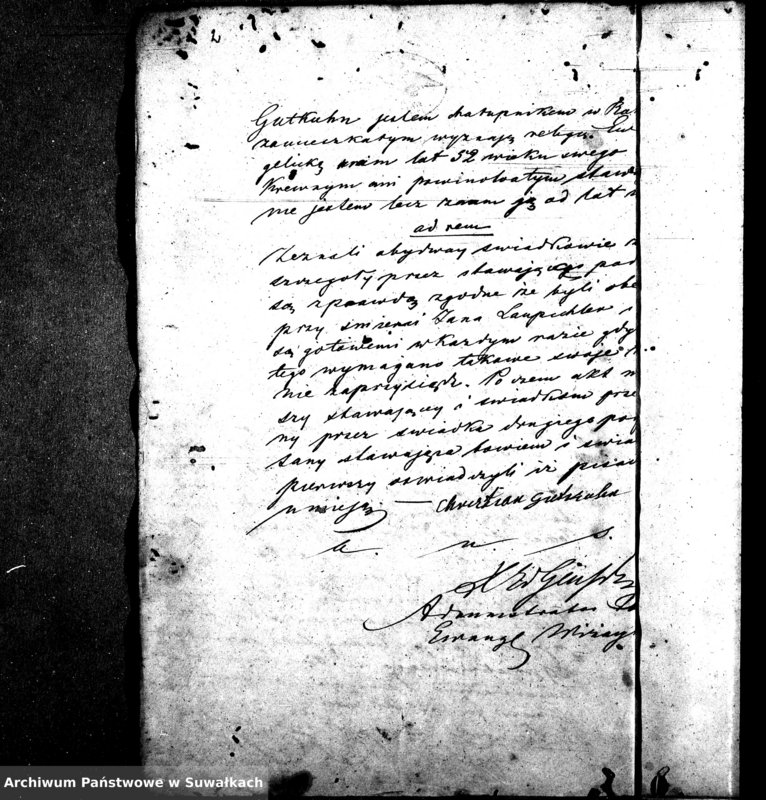 2
Gutkuhn jestem chałupnikem w Ra
zamieszkałym wyznaję religią Ew
gelicką mam lat 52 wieku swego
Krewnym ani powinowatym stawa
nie jestem lecz znam ją od lat
ad rem
Zeznali obydway swiadkowie
szczegoły przez stawającego pod
są zprawdą zgodne że byli obe
przy śmierci Jana Laupichler
są gotowemi w każdym razie gdy
tego wymagano takowe swoje
nie zaprzysiądz. Po czem akt n
szy stawający i swiadkom prze
ny przez swiadka drugiego pod
sany stawająca bowiem i swia
pierwszy oswiadczyli iż pisać
umieją — Christian Gutkuhn
a. u. s.
Administrator
Ewang Wiżay
Archiwum Państwowe w Suwałkach